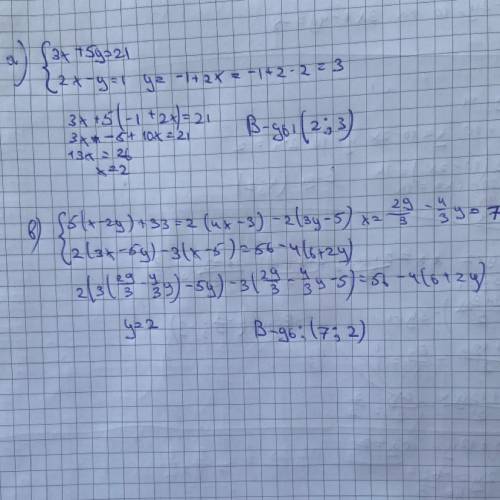 а) { 3x + 5y = 21
2x - y = 1 y = -1 + 2x = -1 + 2 · 2 = 3
3x + 5(-1 + 2x) = 21
3x - 5 + 10x = 21
13x = 26
x = 2
В-дь: (2; 3)
в) { 5(x - 2y) + 33 = 2(4x - 3) - 2(3y - 5) x = 29/3 - 4/3 y = 7
2(3x - 5y) - 3(x - 5) = 56 - 4(6 + 2y)
2(3(29/3 - 4/3 y) - 5y) - 3(29/3 - 4/3 y - 5) = 56 - 4(6 + 2y)
y = 2 В-дь: (7; 2)